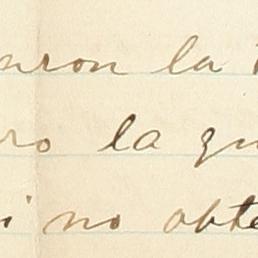 nron la
ro la qu
i no obte